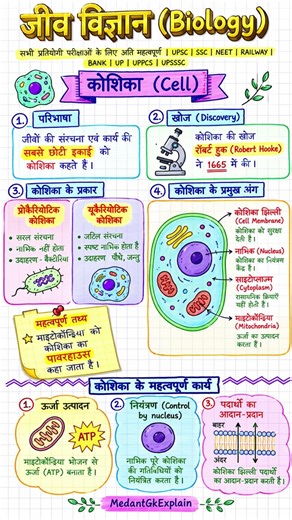 जीव विज्ञान (Biology)
सभी प्रतियोगी परीक्षाओं के लिए अति महत्वपूर्ण | UPSC | SSC | NEET | RAILWAY |
BANK | UP | UPPCS | UPSSSC
कोशिका (Cell)
1. परिभाषा
जीवों की संरचना एवं कार्य की
सबसे छोटी इकाई को
कोशिका कहते है।
2. खोज (Discovery)
कोशिका की खोज
रॉबर्ट हुक (Robert Hooke)
ने 1665 में की।
3. कोशिका के प्रकार
प्रोकैरियोटिक
कोशिका
• सरल संरचना
• नाभिक नहीं होता
• उदाहरण - बैक्टीरिया
यूकैरियोटिक
कोशिका
• जटिल संरचना
• स्पष्ट नाभिक होता है
• उदाहरण पौधे, जन्तु
4. कोशिका के प्रमुख अंग
कोशिका झिल्ली
(Cell Membrane)
कोशिका को सुरक्षा
देती है।
नाभिक (Nucleus)
कोशिका का नियंत्रण
केंद्र है।
साइटोप्लाज्म
(Cytoplasm)
रासायनिक क्रियाएँ
यहीं होती है।
माइटोकॉन्ड्रिया
(Mitochondria)
ऊर्जा का उत्पादन
करता है।
महत्वपूर्ण तथ्य
माइटोकॉन्ड्रिया को
कोशिका का
पावरहाउस
कहा जाता है।
कोशिका के महत्वपूर्ण कार्य
1. ऊर्जा उत्पादन
ATP
माइटोकॉन्ड्रिया भोजन से
ऊर्जा (ATP) बनाता है।
2. नियंत्रण (Control
by nucleus)
नाभिक पूरे कोशिका
की गतिविधियों को
नियंत्रित करता है।
3. पदार्थों का
आदान-प्रदान
बाहर
अंदर
कोशिका झिल्ली पदार्थों
का आदान-प्रदान करती है।
MedantGkExplain